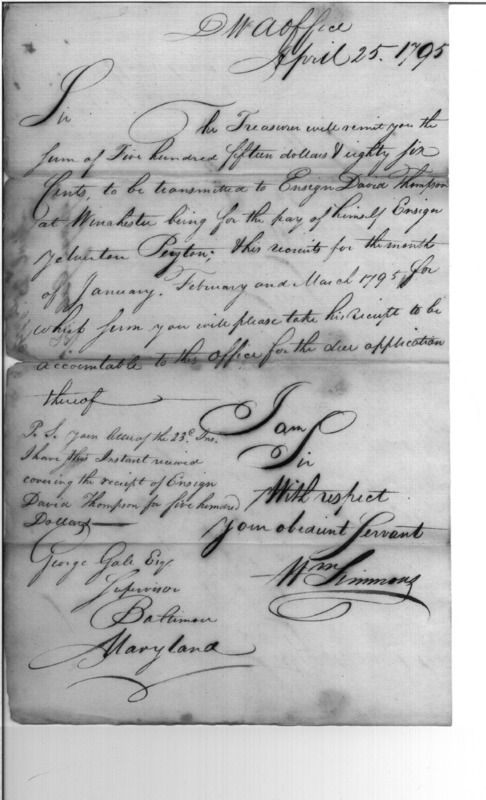 DWA office
April 25. 1795
Sir
The Treasurer will remit you the
sum of Five hundred fifteen dollars & eighty six
Cents, to be transmitted to Ensign David Thompson
at Winchester being for the pay of himself Ensign
Yelverton Peyton, & his recruits for the months
of January. February and March 1795, for
which sum you will please take his receipt to be
accountable to this office for the due application
thereof
P. S. your letter of the 23.^d Ins.
I have this Instant received
covering the receipt of Ensign
David Thompson for five hundred
Dollars
I am
Sir
With respect
Your obedient Servant
Wm Simmons
George Gale Esq.
Supervisor
Baltimore
Maryland